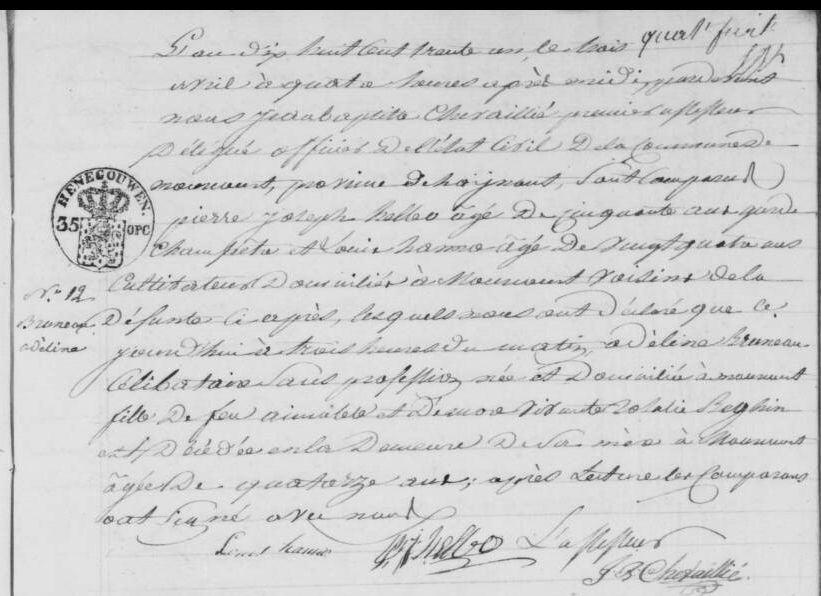 quatr' feuil'
L'an dix huit Cent trente un, le trois
avril à quatre heures après midi, pardevant
nous jeanbaptiste Chevaillié premier assesseur
Délégué officier De l'état Civil De la Commune de
mourcourt, province De hainaut, Sont Comparus
HENEGOUWEN.
35 OPC
pierre joseph helbo âgé De cinquante ans garde
Champêtre et Louis hamo âgé De vingt quatre ans
Cultivateur Domiciliés à Mourcourt voisins de la
Nº 12
Bruneau
adéline
Défunte Ci après, lesquels nous ont Déclaré que ce
jourd'hui à trois heures du matin, adéline Bruneau
Célibataire Sans profession née et Domiciliée à mourcourt
fille De feu aimable et Demoore vivante rosalie Beghin
est Décédée en la Demeure De Sa mère à Mourcourt
âgée De quatorze ans; après lecture les Comparans
ont Signé avec nous
Louis hamo P J helbo L'assesseur
J B Chevaillié